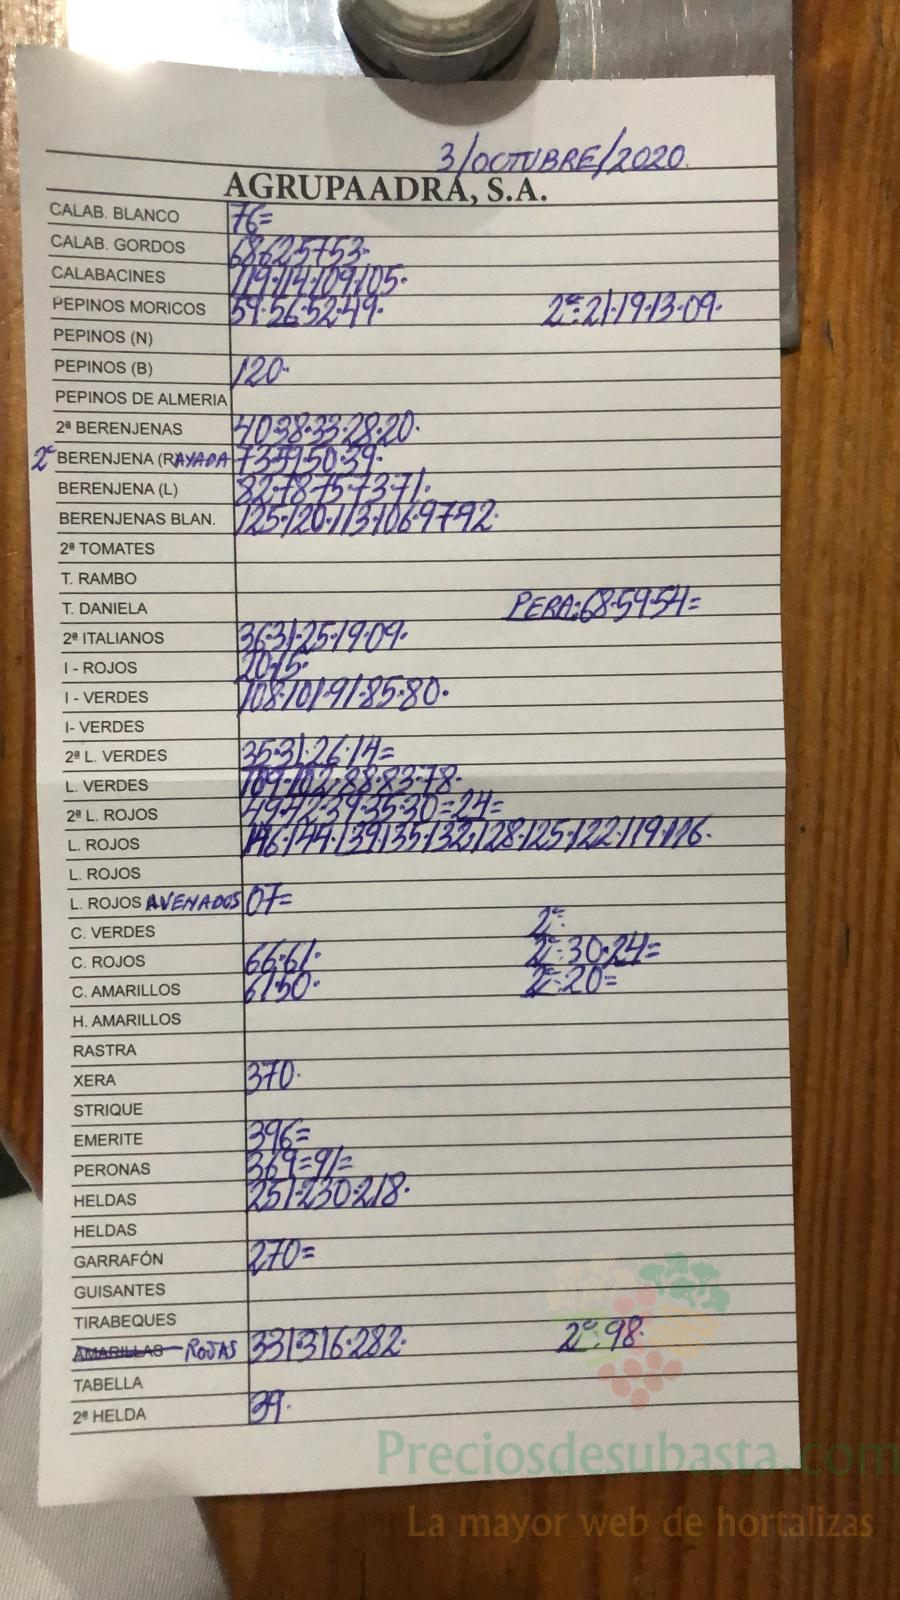 3/OCTUBRE/2020
AGRUPAADRA, S.A.
CALAB. BLANCO 76=
CALAB. GORDOS 68·62·57·53·
CALABACINES 119·114·109·105·
PEPINOS MORICOS 59·56·52·49· 2ª:21·19·13·09·
PEPINOS (N)
PEPINOS (B) 120·
PEPINOS DE ALMERIA
2ª BERENJENAS 40·38·33·28·20·
2ª BERENJENA (RAYADA 73·59·50·39·
BERENJENA (L) 82·78·75·73·71·
BERENJENAS BLAN. 125·120·113·106·97·92·
2ª TOMATES
T. RAMBO
T. DANIELA PERA:68·59·54=
2ª ITALIANOS 36·31·25·19·09·
I - ROJOS 20·15·
I - VERDES 108·101·91·85·80·
I- VERDES
2ª L. VERDES 35·31·26·14=
L. VERDES 109·102·88·83·78·
2ª L. ROJOS 49·42·39·35·30=24=
L. ROJOS 146·144·139·135·132·128·125·122·119·116·
L. ROJOS
L. ROJOS AVENADOS 07=
C. VERDES 2ª:
C. ROJOS 66·61· 2ª:30·24=
C. AMARILLOS 61·50· 2ª:20=
H. AMARILLOS
RASTRA
XERA 370·
STRIQUE
EMERITE 396=
PERONAS 369=91=
HELDAS 251·230·218·
HELDAS
GARRAFÓN 270=
GUISANTES
TIRABEQUES
AMARILLAS ROJAS 331·316·282· 2ª:98·
TABELLA
2ª HELDA 39·
Preciosdesubasta.com
La mayor web de hortalizas